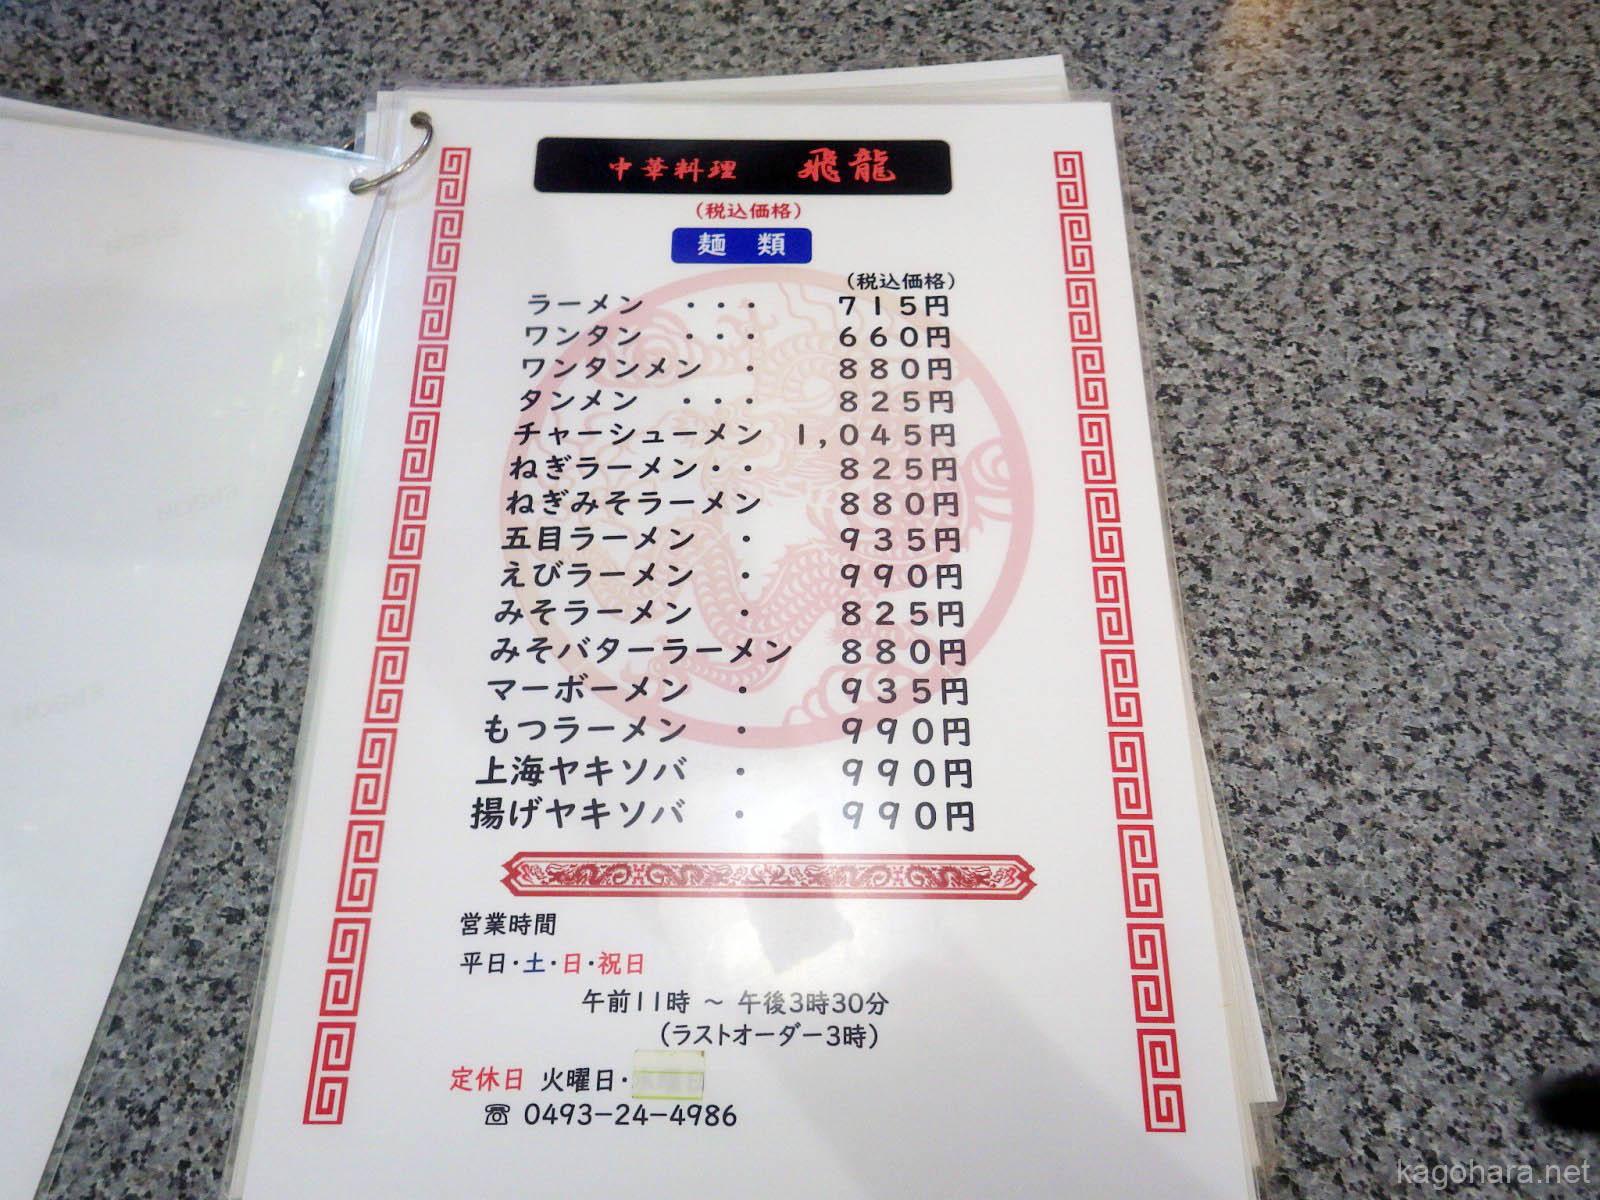 中華料理　飛龍
(税込価格)
麺　類
(税込価格)
ラーメン ・・・ 715円
ワンタン ・・・ 660円
ワンタンメン ・ 880円
タンメン ・・・ 825円
チャーシューメン 1,045円
ねぎラーメン・・ 825円
ねぎみそラーメン 880円
五目ラーメン ・ 935円
えびラーメン ・ 990円
みそラーメン ・ 825円
みそバターラーメン 880円
マーボーメン ・ 935円
もつラーメン ・ 990円
上海ヤキソバ ・ 990円
揚げヤキソバ ・ 990円
営業時間
平日・土・日・祝日
午前11時 ～ 午後3時30分
(ラストオーダー3時)
定休日 火曜日・
☏ 0493-24-4986
kagohara.net